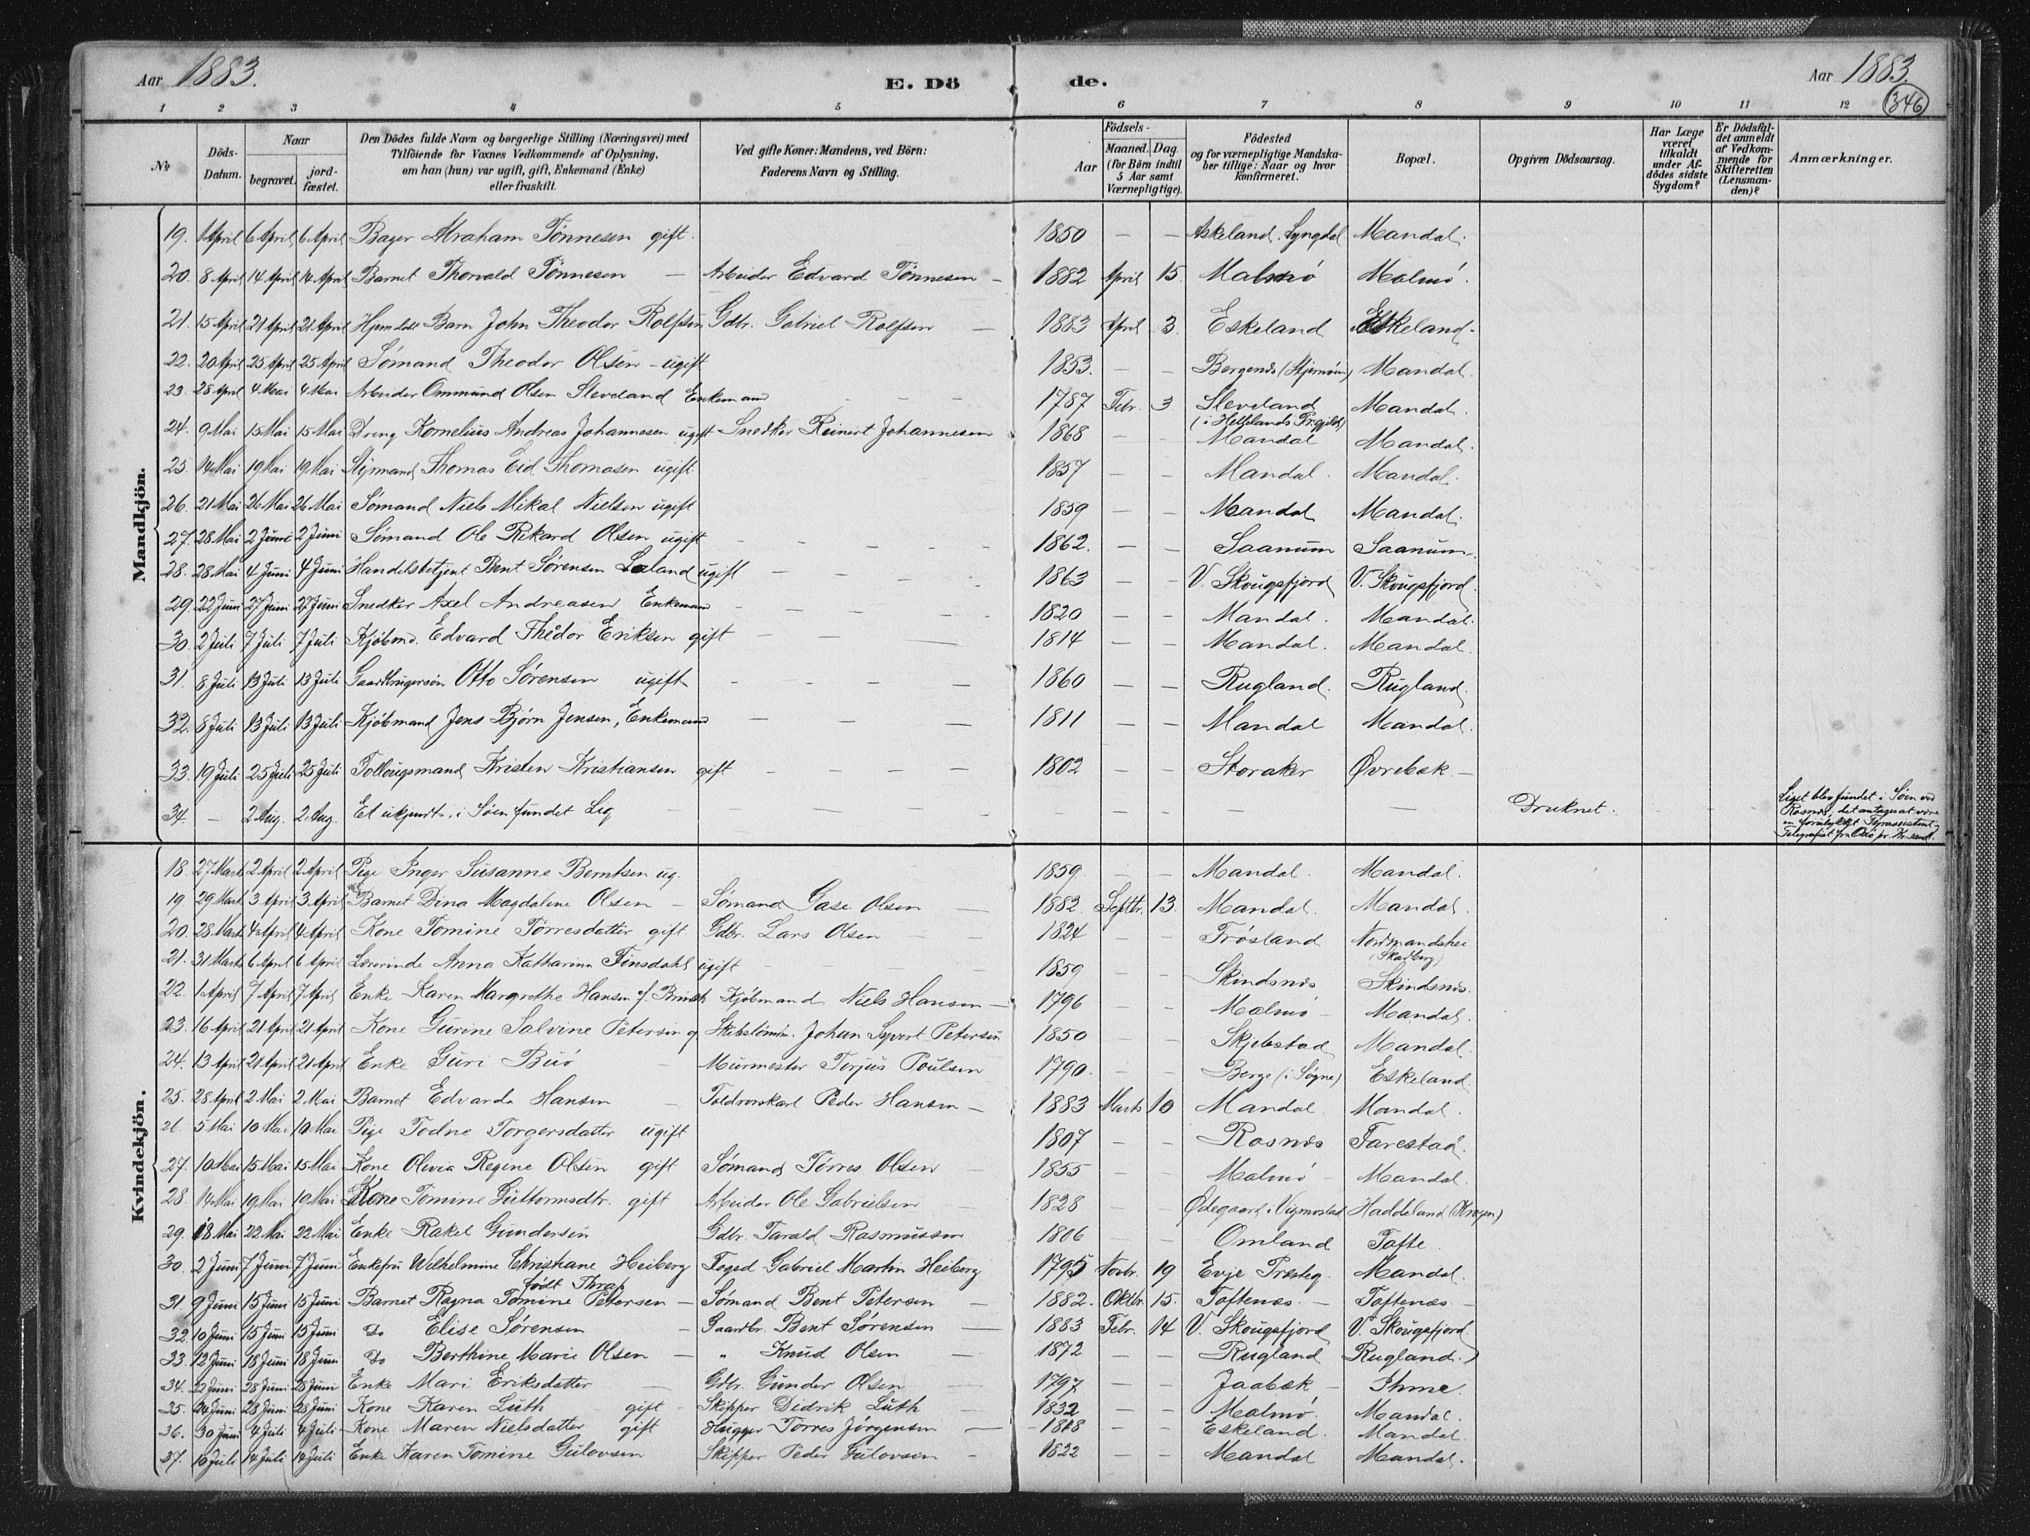 Aar 1883.
E. Dö
de.
Aar 1883.
346
1 2 3 4 5 6 7 8 9 10 11 12
No
Döds-Datum.
Naar
begravet.
jord-fæstet.
Den Dödes fulde Navn og borgerlige Stilling (Næringsvei) med
Tilföiende for Voxnes Vedkommende af Oplysning,
om han (hun) var ugift, gift, Enkemand (Enke)
eller fraskilt.
Ved gifte Koner: Mandens, ved Börn:
Faderens Navn og Stilling.
Födsels-
Aar
Maaned. Dag.
(for Börn indtil
5 Aar samt
Værnepligtige).
Födested
og for værnepligtige Mandska-
ber tillige: Naar og hvor
konfirmeret.
Bopæl.
Opgiven Dödsaarsag.
Har Læge
været
tilkaldt
under Af-
dödes sidste
Sygdom?
Er Dödsfal-
det anmeldt
af Vedkom-
mende for
Skifteretten
(Lensman-
den)?
Anmærkninger.
Mandkjön.
19. 1 April 6 April 6 April Bager Abraham Tønnesen gift. 1850 — — Askeland, Lyngdal Mandal.
20. 8 April 14 April 14 April Barnet Thorvald Tønnesen — Arbeider Edvard Tønnesen — 1882 April 15. Malmø Malmø.
21. 15 April 21 April 21 April Hjemdøbt Barn John Theodor Rolfsen Gdbr. Gabriel Rolfsen — 1883 April 3. Eskeland Eskeland.
22. 20 April 25 April 25 April Sømand Theodor Olsen — ugift 1853. — — Mandal.
23. 28 April 4 Mai 4 Mai Arbeider Ommund Olsen Sleveland Enkemand — — — 1787 Febr. 3 Sleveland Mandal.
(i Hetlands Prgjeld)
24. 9 Mai 15 Mai 15 Mai Dreng Kornelius Andreas Johannesen ugift Snedker Reinert Johannesen 1868 — — Mandal Mandal.
25. 14 Mai 19 Mai 19 Mai Styrmand Thomas Eid Thomasen ugift 1857 — — Mandal. Mandal.
26. 21 Mai 26 Mai 26 Mai Sømand Niels Mikal Nielsen ugift 1859 — — Mandal Mandal.
27. 28 Mai 2 Juni 2 Juni Sømand Ole Rikard Olsen ugift — — — 1862. — — Saanum Saanum.
28. 28 Mai 4 Juni 4 Juni Handelsbetjent Bent Sørensen Laland ugift — — — 1863 — — V. Skougsfjord V. Skougsfjord.
29. 22 Juni 27 Juni 27 Juni Snedker Axel Andreasen Enkemand — — — 1820 — — Mandal. Mandal.
30. 2 Juli 7 Juli 7 Juli Kjøbmd. Edvard Theodor Eriksen gift — — — 1814 — — Mandal. Mandal.
31. 8 Juli 13 Juli 13 Juli Gaardbrugersøn Otto Sørensen ugift — — — 1860 — — Rugland. Rugland.
32. 8 Juli 13 Juli 13 Juli Kjøbmand Jens Bjørn Jensen, Enkemand — — — 1811 — — Mandal Mandal.
33. 19 Juli 25 Juli 25 Juli Kristen Kristiansen gift — — — 1802 — — Storaker Øvrebæk —
34. — 2 Aug. 2 Aug. Et ukjendt, i Søen fundet Lig — — — Druknet. Liget blev fundet i Søen ved
Rosnes, det antages at være
en
Telegrafist fra
Kvindekjön.
18. 27 Marts 2 April 2 April Pige Inger Susanne Berntsen ug. 1859. — — Mandal. Mandal.
19 29 Marts 3 April 3 April Barnet Dina Magdalene Olsen — Sømand Gase Olsen — 1882. Septbr. 13. Mandal. Mandal.
20. 28 Marts 4 April 4 April Kone Tomine Tørresdatter gift Gdbr. Lars Olsen — 1824 — — Trøsland Nordmandshei
(Skadberg)
21. 31 Marts 6 April 6 April Lærerinde Anna Katharina Finsdahl ugift — — — 1859 — — Skindsnes Skindsnes.
22. 1 April 7 April 7 April Enke Karen Margrethe Hansen f. Brinch Kjøbmand Niels Hansen — 1796 — — Malmø — Mandal.
23. 16 April 21 April 21 April Kone Gurine Salvine Petersen g. Skibstømm. Johan Syvert Petersen 1850 — — Skjebstad Mandal.
24. 13 April 21 April 21 April Enke Guri Buø — Murmester Torjus Poulsen 1790. — — Berge (i Søgne) Eskeland.
25. 28 April 2 Mai 2 Mai Barnet Edvarda Hansen — Toldrorskarl Peder Hansen — 1883 Marts 10 Mandal. Mandal.
26. 5 Mai 10 Mai 10 Mai Pige Todne Torgersdatter ugift 1807 — — Rosnes Farestad.
27. 10 Mai 15 Mai 15 Mai Kone Olivia Regine Olsen gift Sømand Tørres Olsen — 1855 — — Malmø — Mandal.
28. 14 Mai 19 Mai 19 Mai Kone Tomine Guttormsdtr. gift Arbeider Ole Gabrielsen — 1828 — — Ødegaard i Vigmostad Haddeland
29. 18 Mai 22 Mai 22 Mai Enke Rakel Gundersen Gdbr. Tarald Rasmussen 1806 — — Omland Tofte.
30. 2 Juni 7 Juni 7 Juni Enkefru Wilhelmine Christiane Heiberg Foged Gabriel Martin Heiberg 1795 Novbr. 19 Evje Præsteg. Mandal.
født Thrap
31. 9 Juni 15 Juni 15 Juni Barnet Ragna Tomine Petersen — Sømand Bent Petersen — 1882. Oktbr. 15. Toftenæs. — Toftenæs. —
32. 10 Juni 15 Juni 15 Juni Do Elise Sørensen — Gaardbr. Bent Sørensen — 1883 Febr. 14 V. Skougsfjord V. Skougsfjord
33. 12 Juni 18 Juni 18 Juni Do Berthine Marie Olsen — " Knud Olsen — 1872 — — Rugland Rugland.
34. 22 Juni 28 Juni 28 Juni Enke Mari Eriksdatter — Gdbr. Gunder Olsen — 1797 — — Jaabæk — Ihme.
35. 24 Juni 28 Juni 28 Juni Kone Karen Luth gift — Skipper Didrik Luth 1832 — — Malmø. Mandal.
36. 30 Juni 4 Juli 4 Juli Kone Maren Nielsdatter gift Hugger Tørres Jørgensen — 1818 — — Eskeland. Mandal.
37. 10 Juli 14 Juli 14 Juli Enke Karen Tomine Gulovsen Skipper Peder Gulovsen — 1822 — — Mandal Mandal.